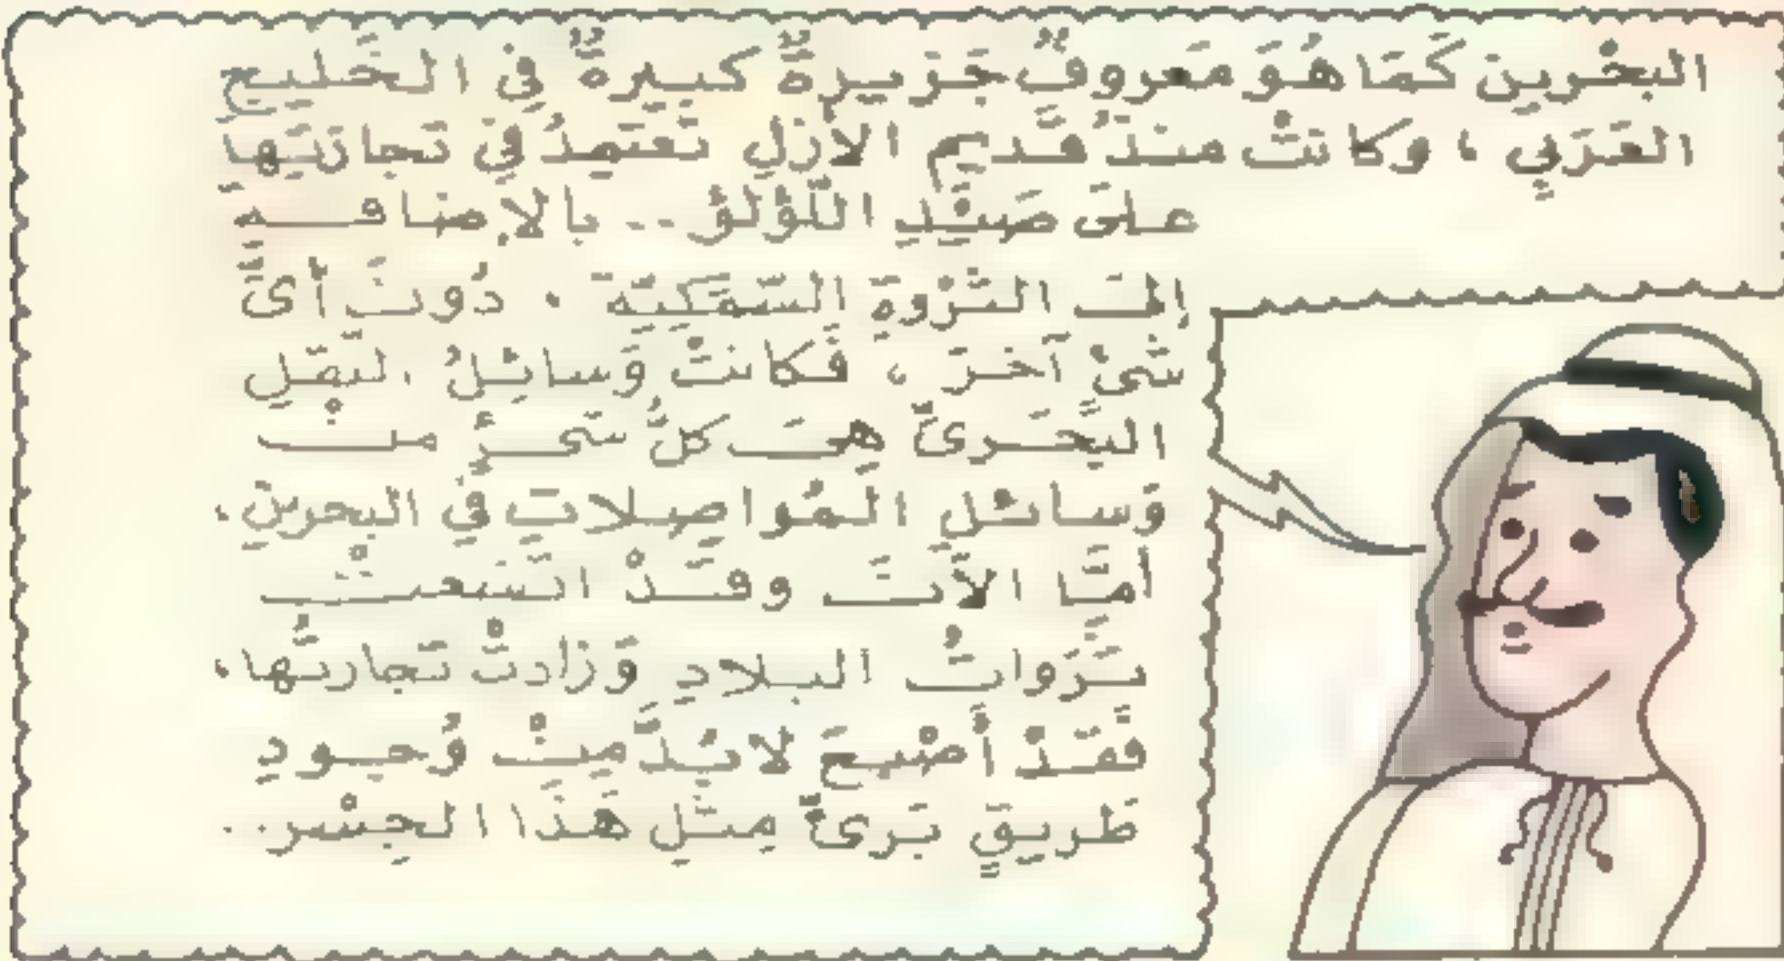 البحْرين كَمَا هُوَ مَعروفٌ جَزيرةٌ كبيرةٌ فِي الخَليجِ
العَرَبِي ، وكانتْ منذُ قَديمِ الأزلِ تَعتمِدُ فِي تجارَتِها
على صَيْدِ اللّؤلؤ .. بالإضافه
إلى الثَرْوةِ السَّمَكِيَّة . دُونَ أىِّ
شَىْءٍ آخرَ ، فَكانتْ وَسائِلُ النقلِ
البَحَرىِّ هِىَ كلُّ شىءٍ منْ
وَسائلِ المُواصِلاتِ فِي البحرين .
أمَّا الأنَ وقَدْ اتسَعتْ
ثَرَواتُ البلادِ وَزادتْ تجارتُها ،
فَقَدْ أَصْبحَ لابُدَّ مِنْ وُجودِ
طَريقٍ بَرىٍّ مِثلِ هَذَا الجِسْر ..